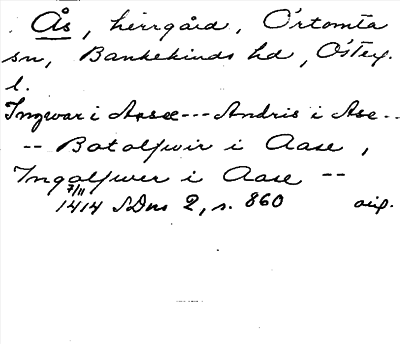 Ås, herrgård, Örtomta
sn, Bankekinds hd, Östg.
l.
Ingwar i Aosæ --- Andris i Ase --
-- Botolfwir i Aase,
Ingolfwer i Aase --
7/11
1414 SDns 2, s. 860 avs.